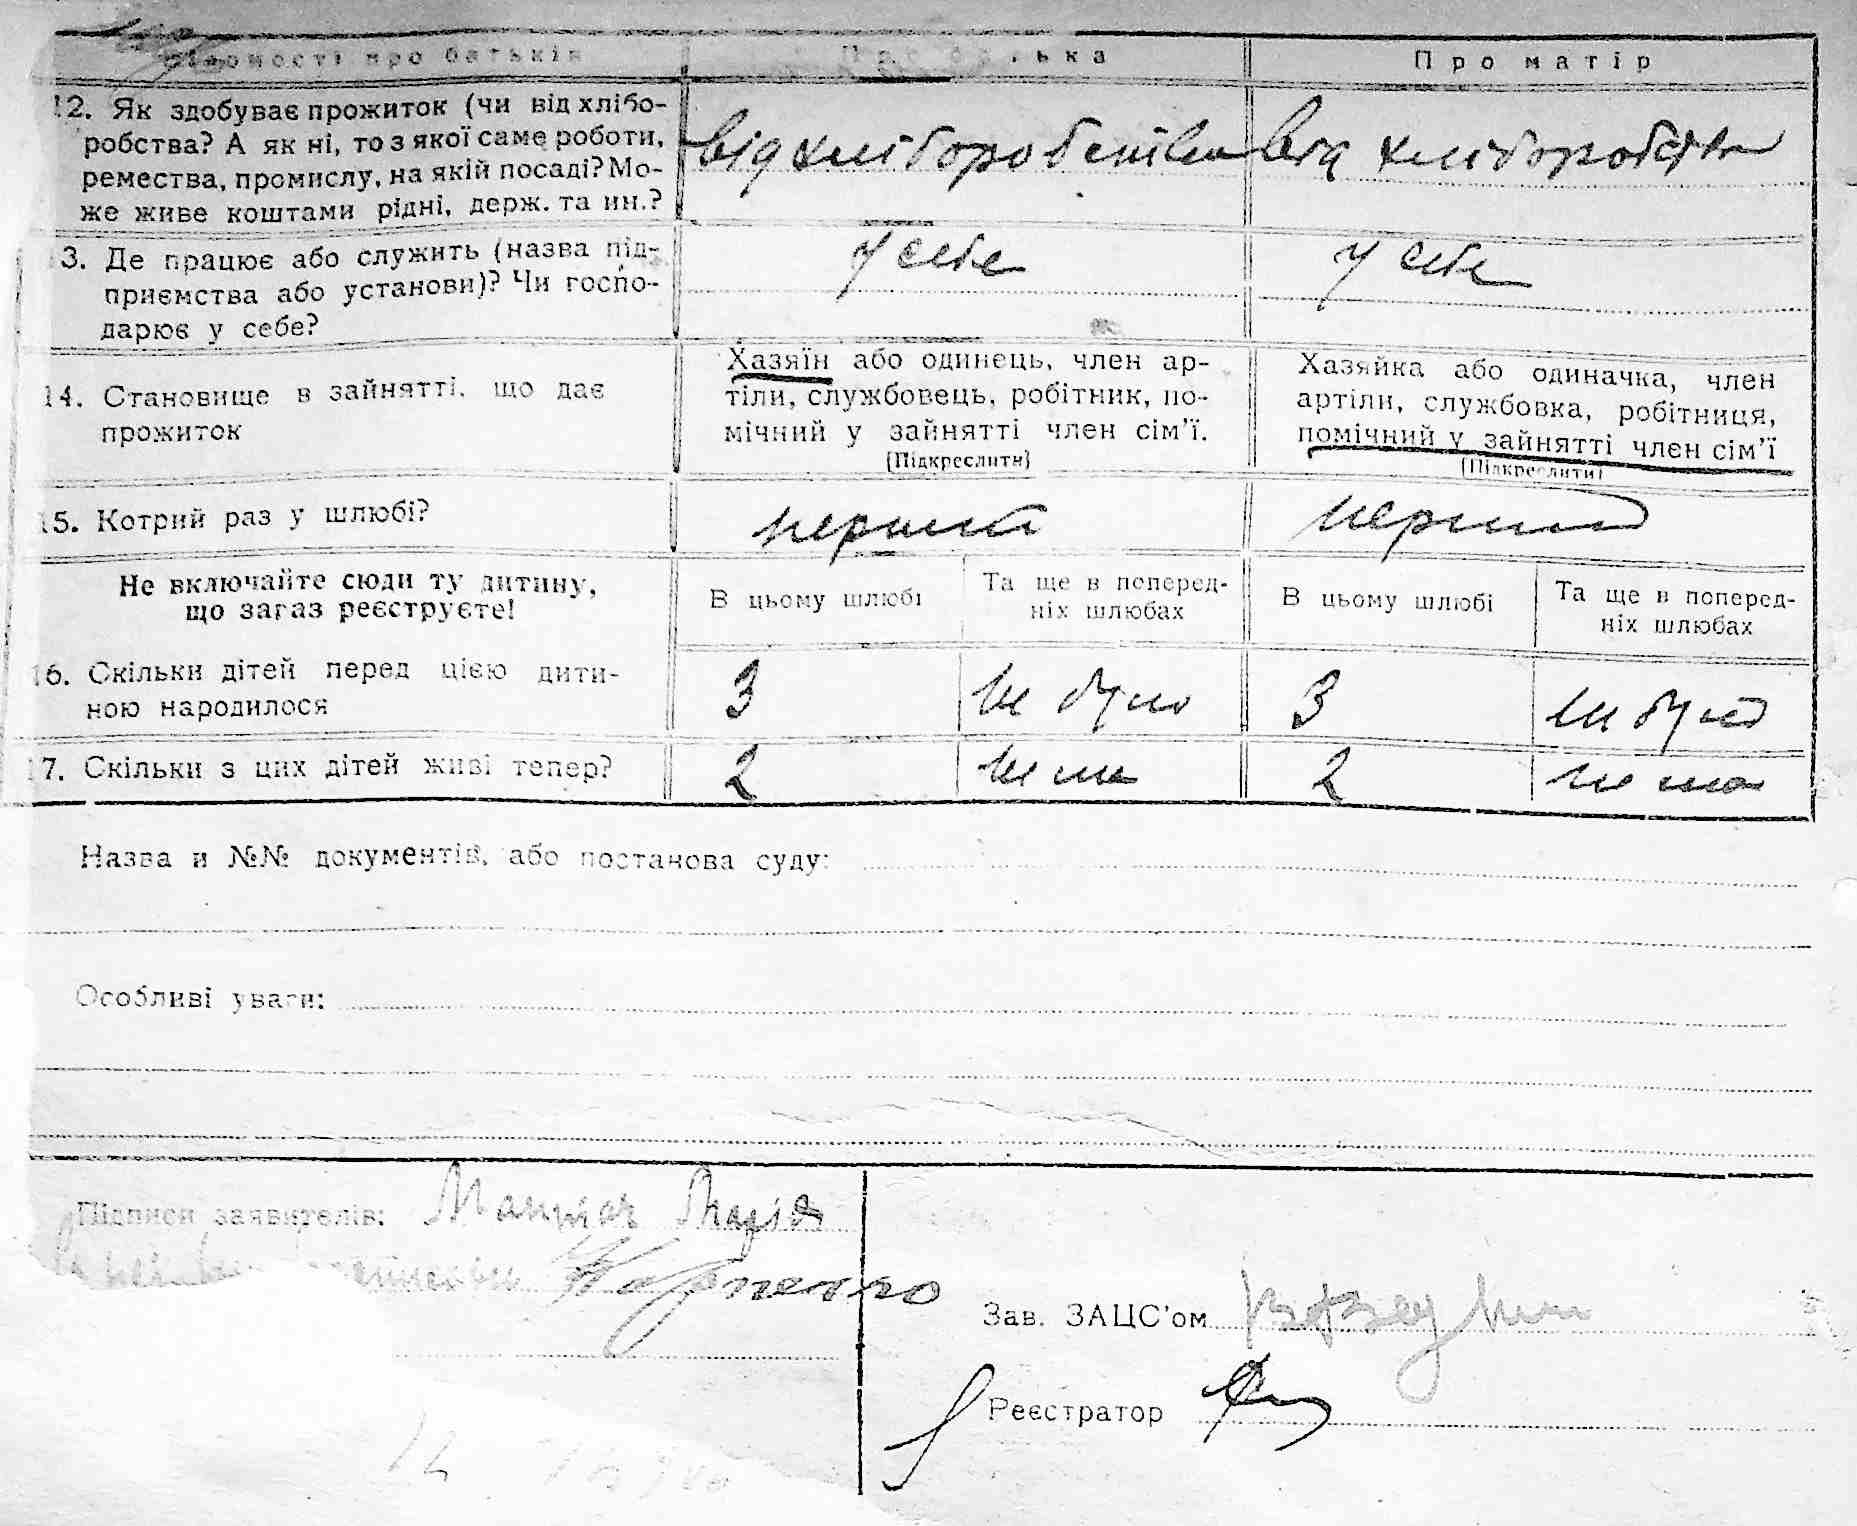 Відомості про батьків Про батька Про матір
12. Як здобуває прожиток (чи від хлібо-
робства? А як ні, то з якої саме роботи,
ремества, промислу, на якій посаді? Мо-
же живе коштами рідні, держ. та ин.?
від хліборобства від хліборобства
13. Де працює або служить (назва під-
приємства або установи)? Чи госпо-
дарює у себе?
у себе у себе
14. Становище в зайнятті, що дає
прожиток
Хазяїн або одинець, член ар-
тіли, службовець, робітник, по-
мічний у зайнятті член сім'ї.
(Підкреслити)
Хазяйка або одиначка, член
артіли, службовка, робітниця,
помічний у зайнятті член сім'ї
(Підкреслити)
15. Котрий раз у шлюбі? перший перший
Не включайте сюди ту дитину,
що зараз реєструєте!
В цьому шлюбі
Та ще в поперед-
ніх шлюбах
В цьому шлюбі
Та ще в поперед-
ніх шлюбах
16. Скільки дітей перед цією дити-
ною народилося
3 не було 3 не було
17. Скільки з цих дітей живі тепер? 2 нема 2 нема
Назва и №№ документів, або постанова суду:
Особливі уваги:
Підписи заявителів: Марія
Карпенко
Зав. ЗАЦС'ом
Реєстратор